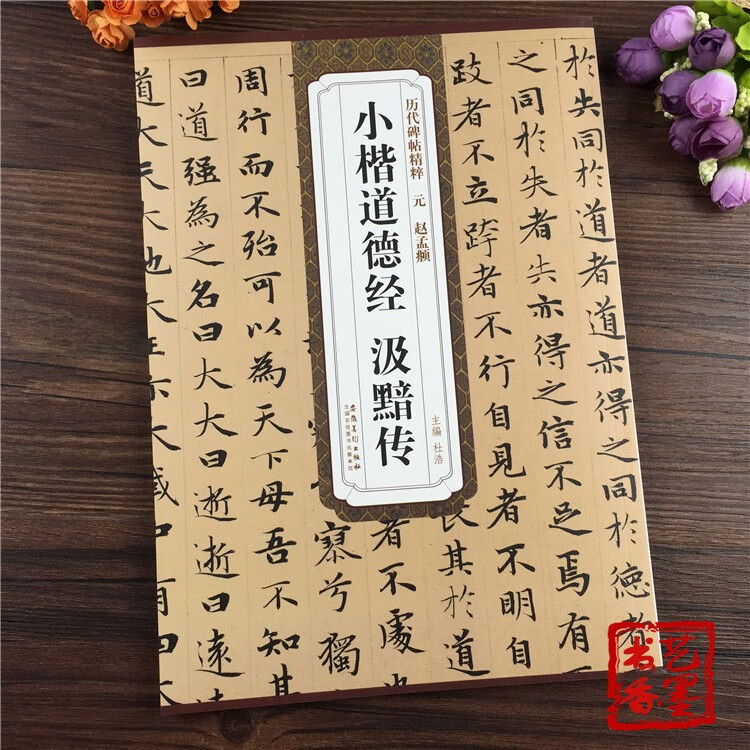 於失同於道者道亦得之同於德者
之同於失者失亦得之信不足焉有
跂者不立跨者不行自見者不明自
長其於道
历代碑帖精粹 元 赵孟頫
小楷道德经 汲黯传
主编 杜浩
安徽美术出版社
全国百佳图书出版单位
者不處
寥兮獨
周行而不殆可以為天下母吾不知其
曰道強為之名曰大大曰逝逝曰遠遠
道大天大地大王亦大域中
艺墨
书香